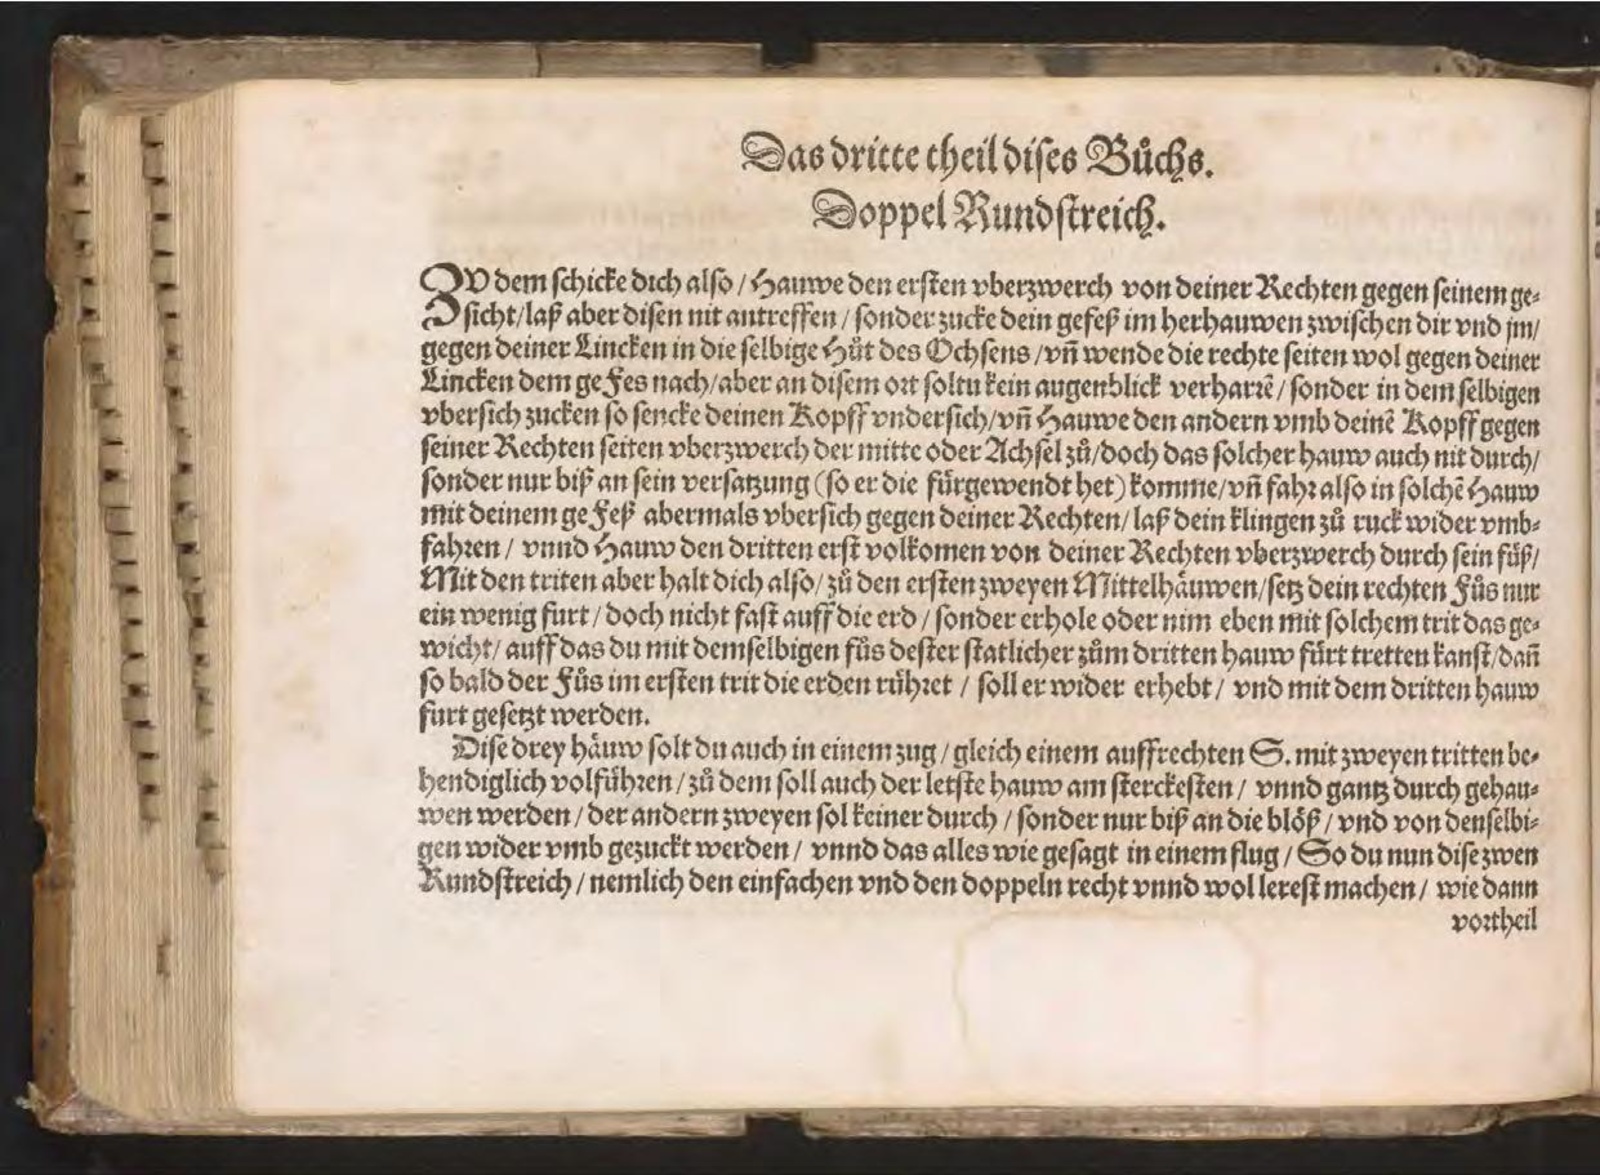 Das dritte theil dises Bůchs.
Doppel Rundstreich.
ZV dem schicke dich also / Hauwe den ersten vberzwerch von deiner Rechten gegen seinem ge⸗
sicht / laß aber disen nit antreffen / sonder zucke dein gefeß im herhauwen zwischen dir vnd jm /
gegen deiner Lincken in die selbige Hůt des Ochsens / vñ wende die rechte seiten wol gegen deiner
Lincken dem gefes nach / aber an disem ort soltu kein augenblick verharrẽ / sonder in dem selbigen
vbersich zucken so sencke deinen Kopff vndersich / vñ Hauwe den andern vmb deinẽ Kopff gegen
seiner Rechten seiten vberzwerch der mitte oder Achsel zů / doch das solcher hauw auch nit durch /
sonder nur biß an sein versatzung (so er die fürgewendt het) komme / vñ fahr also in solchẽ Hauw
mit deinem gefeß abermals vbersich gegen deiner Rechten / laß dein klingen zů ruck wider vmb⸗
fahren / vnnd Hauw den dritten erst volkomen von deiner Rechten vberzwerch durch sein füß /
Mit den triten aber halt dich also / zů den ersten zweyen Mittelhäuwen / setz dein rechten Fůs nur
ein wenig furt / doch nicht fast auff die erd / sonder erhole oder nim eben mit solchem trit das ge⸗
wicht / auff das du mit demselbigen fůs dester statlicher zům dritten hauw fürt tretten kanst / dañ
so bald der Fůs im ersten trit die erden rühret / soll er wider erhebt / vnd mit dem dritten hauw
furt gesetzt werden.
Dise drey häuw solt du auch in einem zug / gleich einem auffrechten S. mit zweyen tritten be⸗
hendiglich volführen / zů dem soll auch der letste hauw am sterckesten / vnnd gantz durch gehau⸗
wen werden / der andern zweyen sol keiner durch / sonder nur biß an die blöß / vnd von denselbi⸗
gen wider vmb gezuckt werden / vnnd das alles wie gesagt in einem flug / So du nun dise zwen
Rundstreich / nemlich den einfachen vnd den doppeln recht vnnd wol lerest machen / wie dann
vortheil